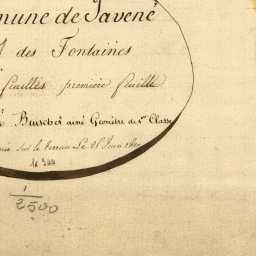 mune de Savené
des Fontaines
feuilles première feuille
ainé Géomètre de 1re Classe
sur le terrain Le 25 Juin
1
2500